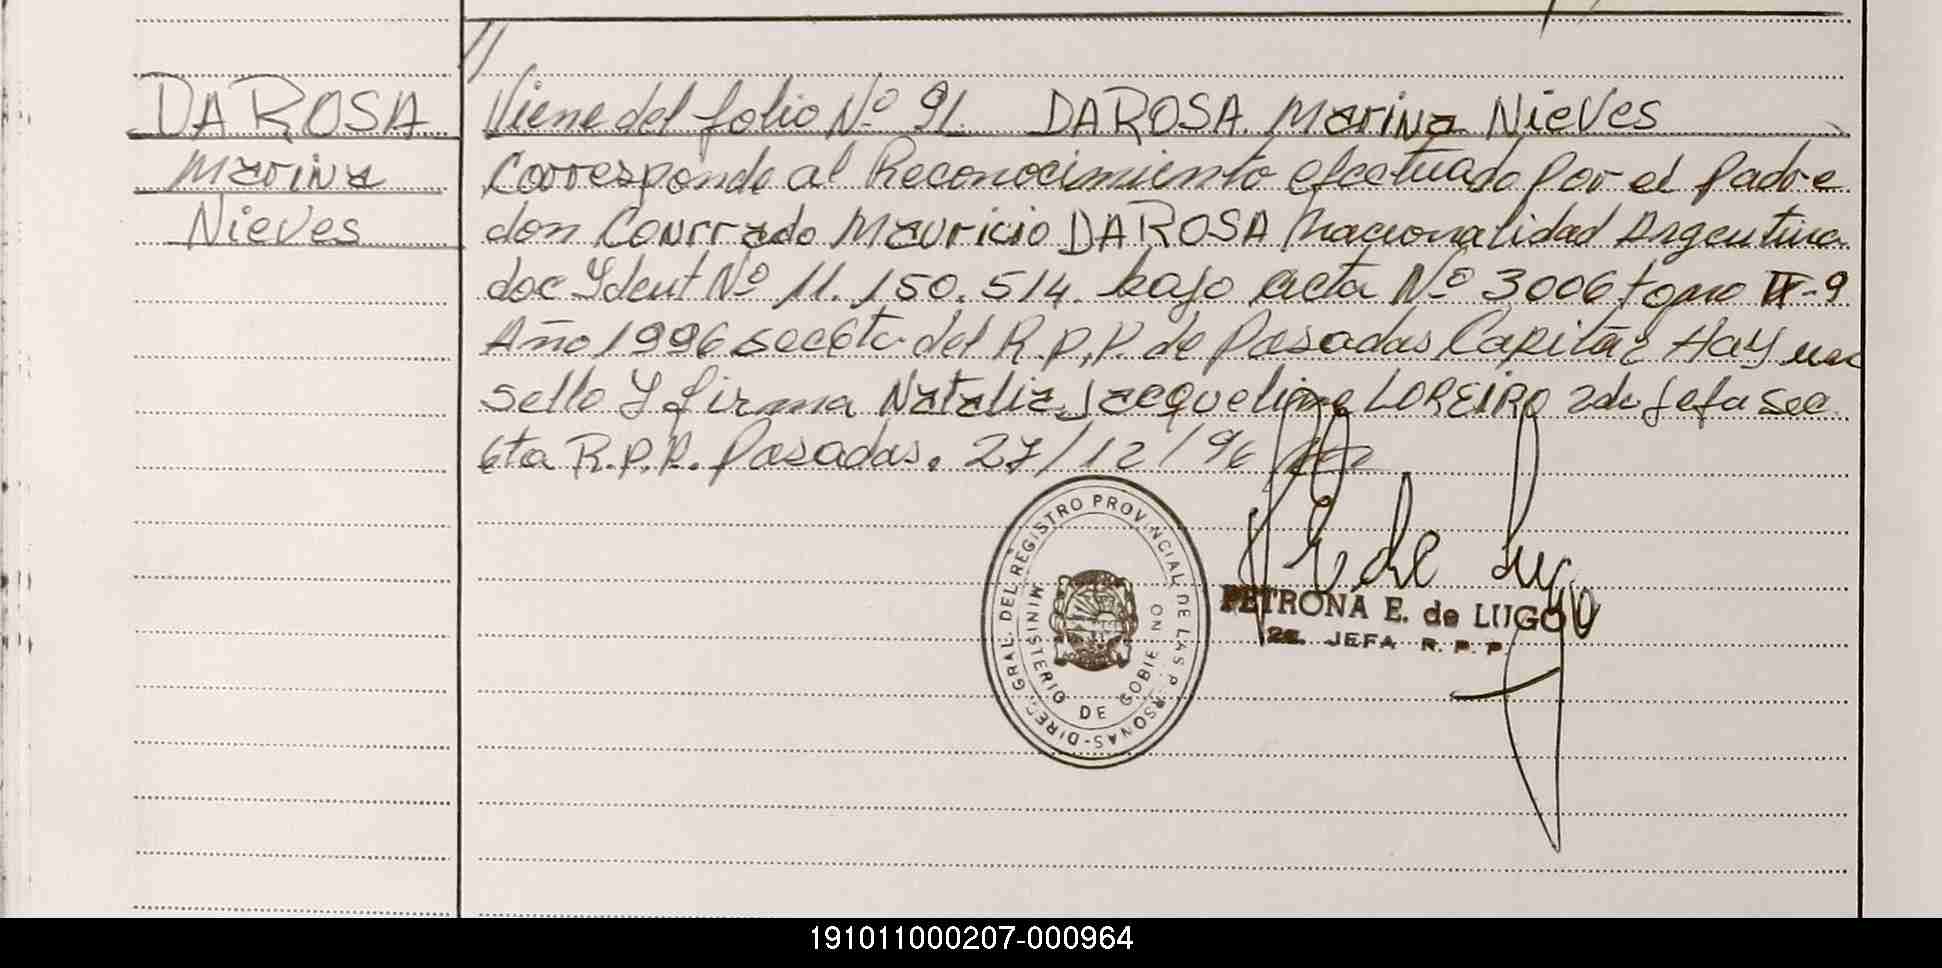 //
DAROSA
Marina
Nieves
Viene del folio Nº 91. DAROSA. Marina Nieves
Corresponde al Reconocimiento efectuado por el padre
don Conrrado Mauricio DAROSA nacionalidad Argentina
doc Ident Nº 11.150.514. bajo acta Nº 3006 tomo II-9
Año 1996 secc 6ta del R.P.P. de Posadas Capital Hay un
sello y firma Natalia Jacqueline LOREIRO 2da Jefa Sec
6ta R.P.P. Posadas. 27/12/96
PETRONA E. de LUGO
2a. JEFA R.P.P.
DIREC. GRAL. DEL REGISTRO PROVINCIAL DE LAS PERSONAS-
MINISTERIO DE GOBIERNO
191011000207-000964